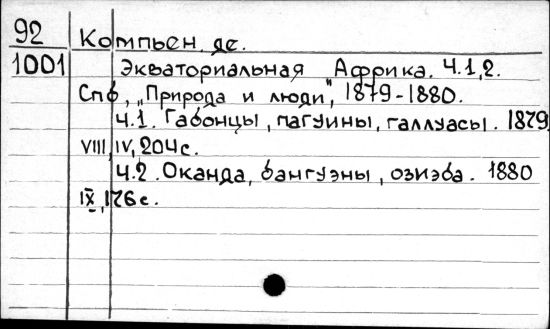 92 Компьен, де.
1001 Экваториальная Африка. Ч.1,2.
Спб, „Природа и люди", 1879-1880.
Ч.1. Габонцы, пагуины, галлуасы. 1879
VIII, IV, 204с.
Ч.2. Оканда, бангуэны, озиэба. 1880
IX, 176с.